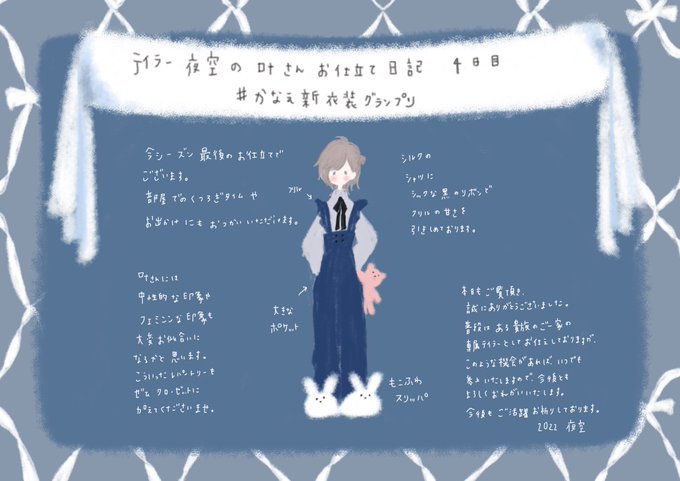 テイラー 夜空の 叶さん お仕立て 日記 4日目
#かなえ新衣装グランプリ
今シーズン 最後の お仕立てで
ございます。
部屋 での くつろぎタイム や
お出かけ にも おつかい いただけます。
フリル
シルクの
シャツに
シックな 黒 のリボンで
フリルの 甘さを
引きしめております。
叶さんには
中性的な 印象や
フェミニンな 印象も
大変 お似合いに
なるかと 思います。
こういった レパートリーを
ぜひ クローゼットに
加えてくださいませ。
大きな
ポケット
もこふわ
スリッパ
本日も ご覧頂き、
誠にありがとうございました。
普段は ある 貴族の ご一家の
専属テイラーとして お仕えしておりますが、
このような 機会が あれば いつでも
参上 いたしますので、今後とも
よろしく おねがい いたします。
今後も ご活躍 お祈りしております。
2022 夜空